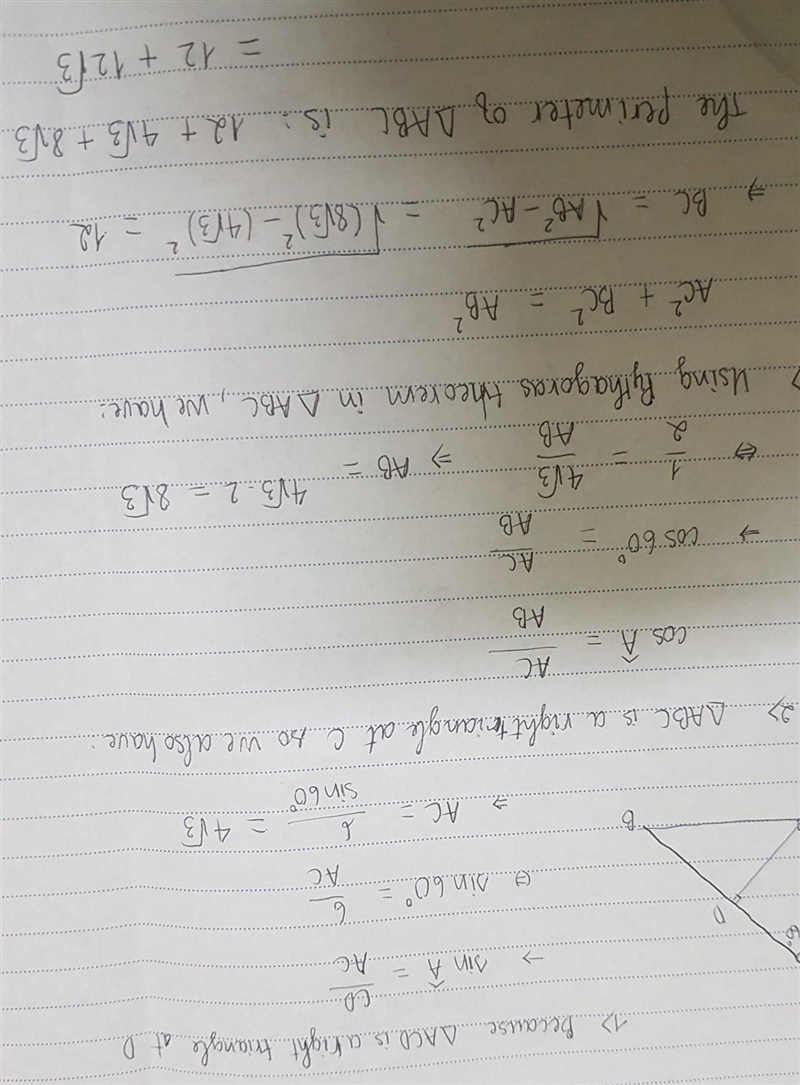 1> Because ΔACD is a right triangle at D
→ sin Â = CD/AC
⇔ sin 60° = 6/AC
⇒ AC = 6/sin 60° = 4√3
B
D
60°
2> ΔABC is a right triangle at C so we also have:
cos Â = AC/AB
→ cos 60° = AC/AB
⇔ 1/2 = 4√3/AB ⇒ AB = 4√3 . 2 = 8√3
> Using Pythagoras theorem in ΔABC, we have:
AC² + BC² = AB²
⇒ BC = √AB² - AC² = √(8√3)² - (4√3)² = 12
The perimeter of ΔABC is: 12 + 4√3 + 8√3
= 12 + 12√3